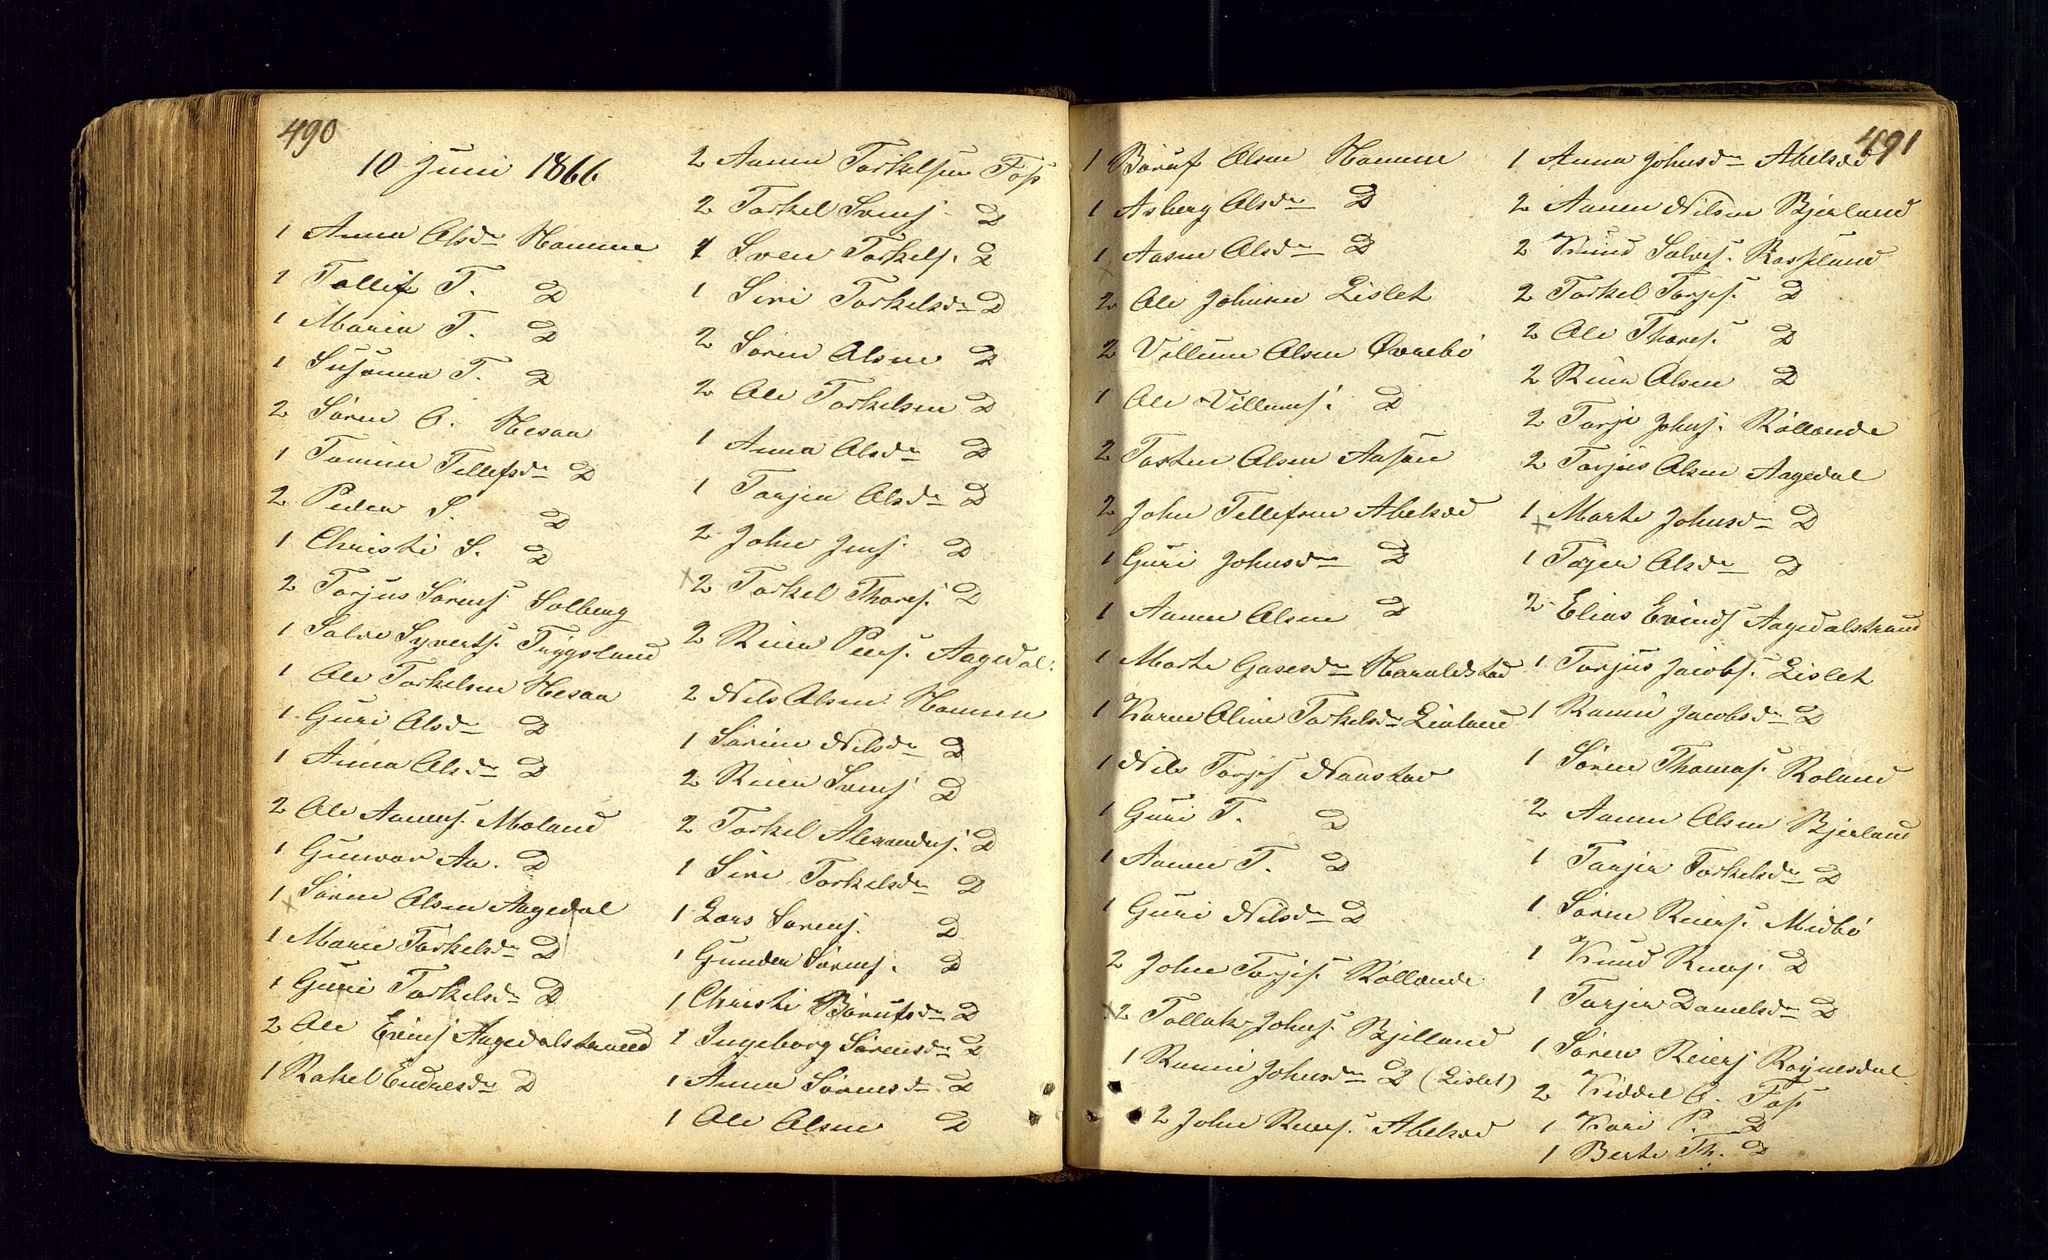 490
10 Juni 1866
1 Anna Olsdr Homme
1 Tellef T. D
1 Maria T. D
1 Susanna T. D
2 Søren O. Hesaa
1 Tomine Tellefsdr D
2 Peder S. D
1 Christi S. D
2 Torjus Sørens. Solberg
1 Salve Syverts. Tryggsland
1 Ole Torkelsen Hesaa
1 Guri Olsdr D
1 Anna Olsdr D
2 Ole Aanens. Moland
1 Gunvor Aa. D
1 Søren Olsen Aagedal
1 Maren Torkelsdr D
1 Guri Torkelsdr D
2 Ole Evens Aagedalstrand
1 Rakel Endresdr D
2 Aanen Torkelsen Foss
2 Torkel Svens. D
1 Sven Torkels. D
1 Siri Torkelsdr D
2 Søren Olsen D
2 Ole Torkelsen D
1 Anna Olsdr D
1 Torjer Olsdr D
2 John Jens. D
2 Torkel Thores. D
2 Reier Peers. Aagedal
2 Nils Olsen Hommen
1 Sørine Nilsdr D
2 Reier Svens D
2 Torkel Alexanders. D
1 Siri Torkelsdr D
1 Lars Sørens. D
1 Gunder Sørens. D
1 Christi Børufsdr D
1 Ingeborg Sørensdr D
1 Anna Sørensdr D
1 Ole Olsen D
491
1 Børuf Olsen Homme
1 Asberg Olsdr D
1 Aasne Olsdr D
2 Ole Johnsen Lislet
2 Villum Olsen Øvrebø
1 Ole Villums. D
2 Tosten Olsen Aasen
2 John Tellefsen Abelsæd
1 Guri Johnsdr D
1 Aanen Olsen D
1 Marte Gasesdr Haraldstad
1 Karen Oline Torkelsdr Linland
1 Nils Torjes Naustad
1 Guri T. D
1 Aanen T. D
1 Guri Nilsdr D
2 John Torjes. Røllende
2 Tollak Johns. Bjelland
1 Rannei Johnsdr D (Lislet)
2 John Reiers. Abelsæd
1 Anna Johnsdr Abelsæd
2 Aanen Nilsen Bjerland
2 Knud Salves. Rossland
2 Torkel Torjes. D
2 Ole Thores. D
2 Reier Olsen D
2 Torje Johns. Røllende
2 Torjus Olsen Aagedal
1 Marte Johnsdr D
1 Tojer Olsdr D
2 Elias Evinds Aagedalstrand
1 Torjus Jacobs. Lislet
1 Rannei Jacobsdr D
1 Søren Thomas. Roland
2 Aanen Olsen Bjerland
1 Torjer Torkelsdr D
1 Søren Reiers. Midbø
1 Knud Reiers. D
1 Torjer Danielsdr D
1 Søren Reiers Røynesdal
2 Kiddel O. Foss
1 Kari P. D
1 Berte Th. D